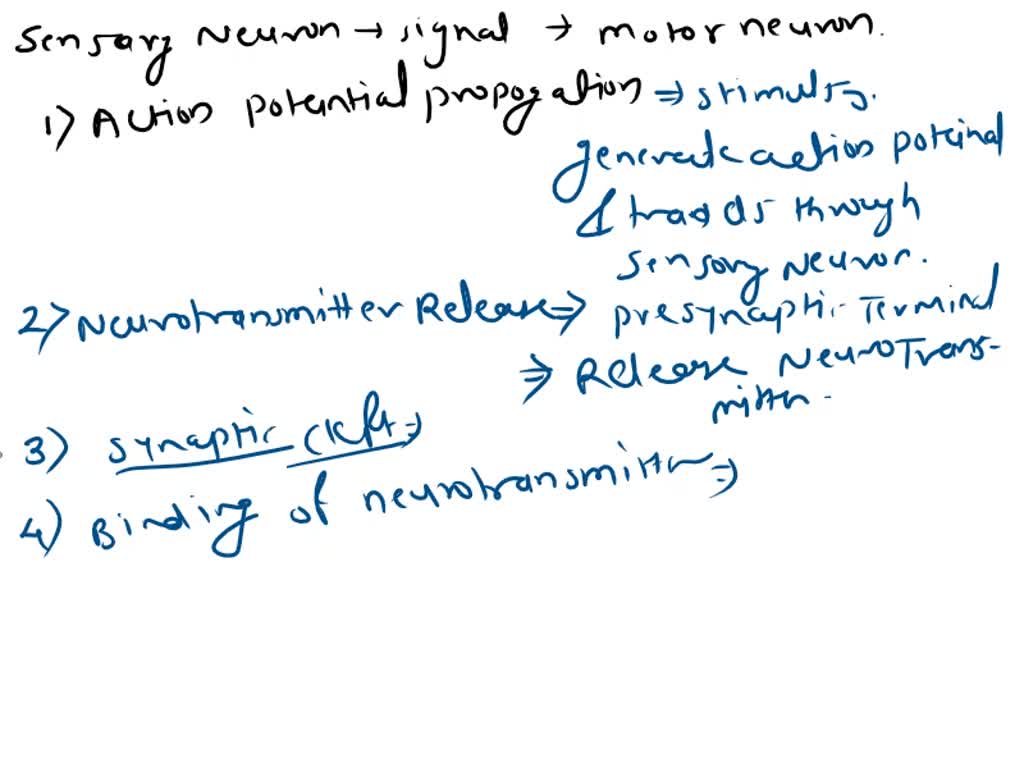 Sensory Neuron → signal → motor neuron.
1) Action potential propogation ⇒ stimulus.
generate action poteinal
& travels through
sensory neuron.
2) Neurotransmitter Release ⇒ presynaptic Terminal
⇒ Release NeuroTrans-
mitter.
3) synaptic cleft ⇒
4) Binding of neurotransmitter ⇒